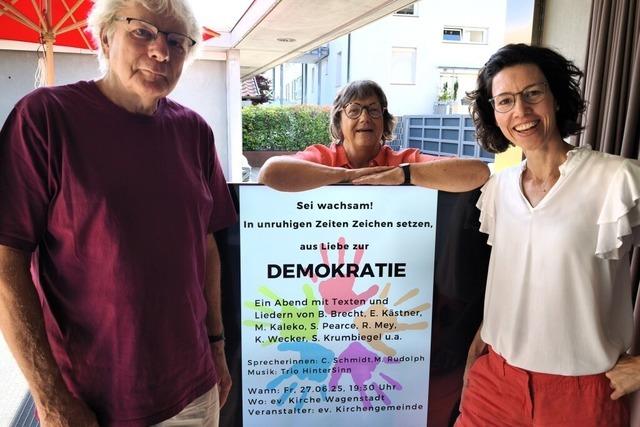 Sei wachsam!
In unruhigen Zeiten Zeichen setzen,
aus Liebe zur
DEMOKRATIE
Ein Abend mit Texten und
Liedern von B. Brecht, E. Kästner,
M. Kaleko, S. Pearce, R. Mey,
K. Wecker, S. Krumbiegel u.a.
Sprecherinnen: C. Schmidt,M. Rudolph
Musik: Trio HinterSinn
Wann: Fr, 27.06.25, 19:30 Uhr
Wo: ev. Kirche Wagenstadt
Veranstalter: ev. Kirchengemeinde